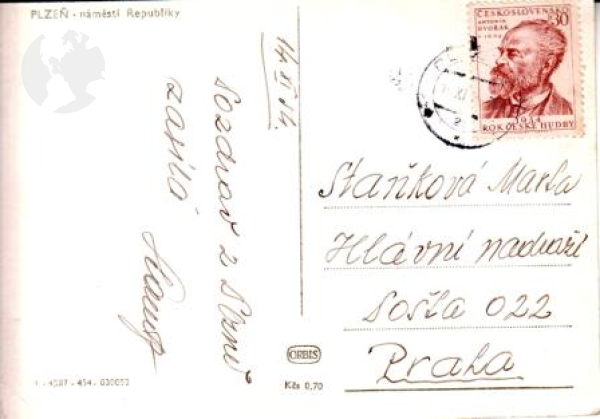 PLZEŇ - náměstí Republiky
14. XI. 54.
Pozdrav z Plzně
zasílá
ČESKOSLOVENSKO
30
ANTONÍN
DVOŘÁK
1904
1954
ROK ČESKÉ HUDBY
Staňková Marta
Hlavní nádraží
Pošta 022
Praha
ORBIS
Kčs 0,70